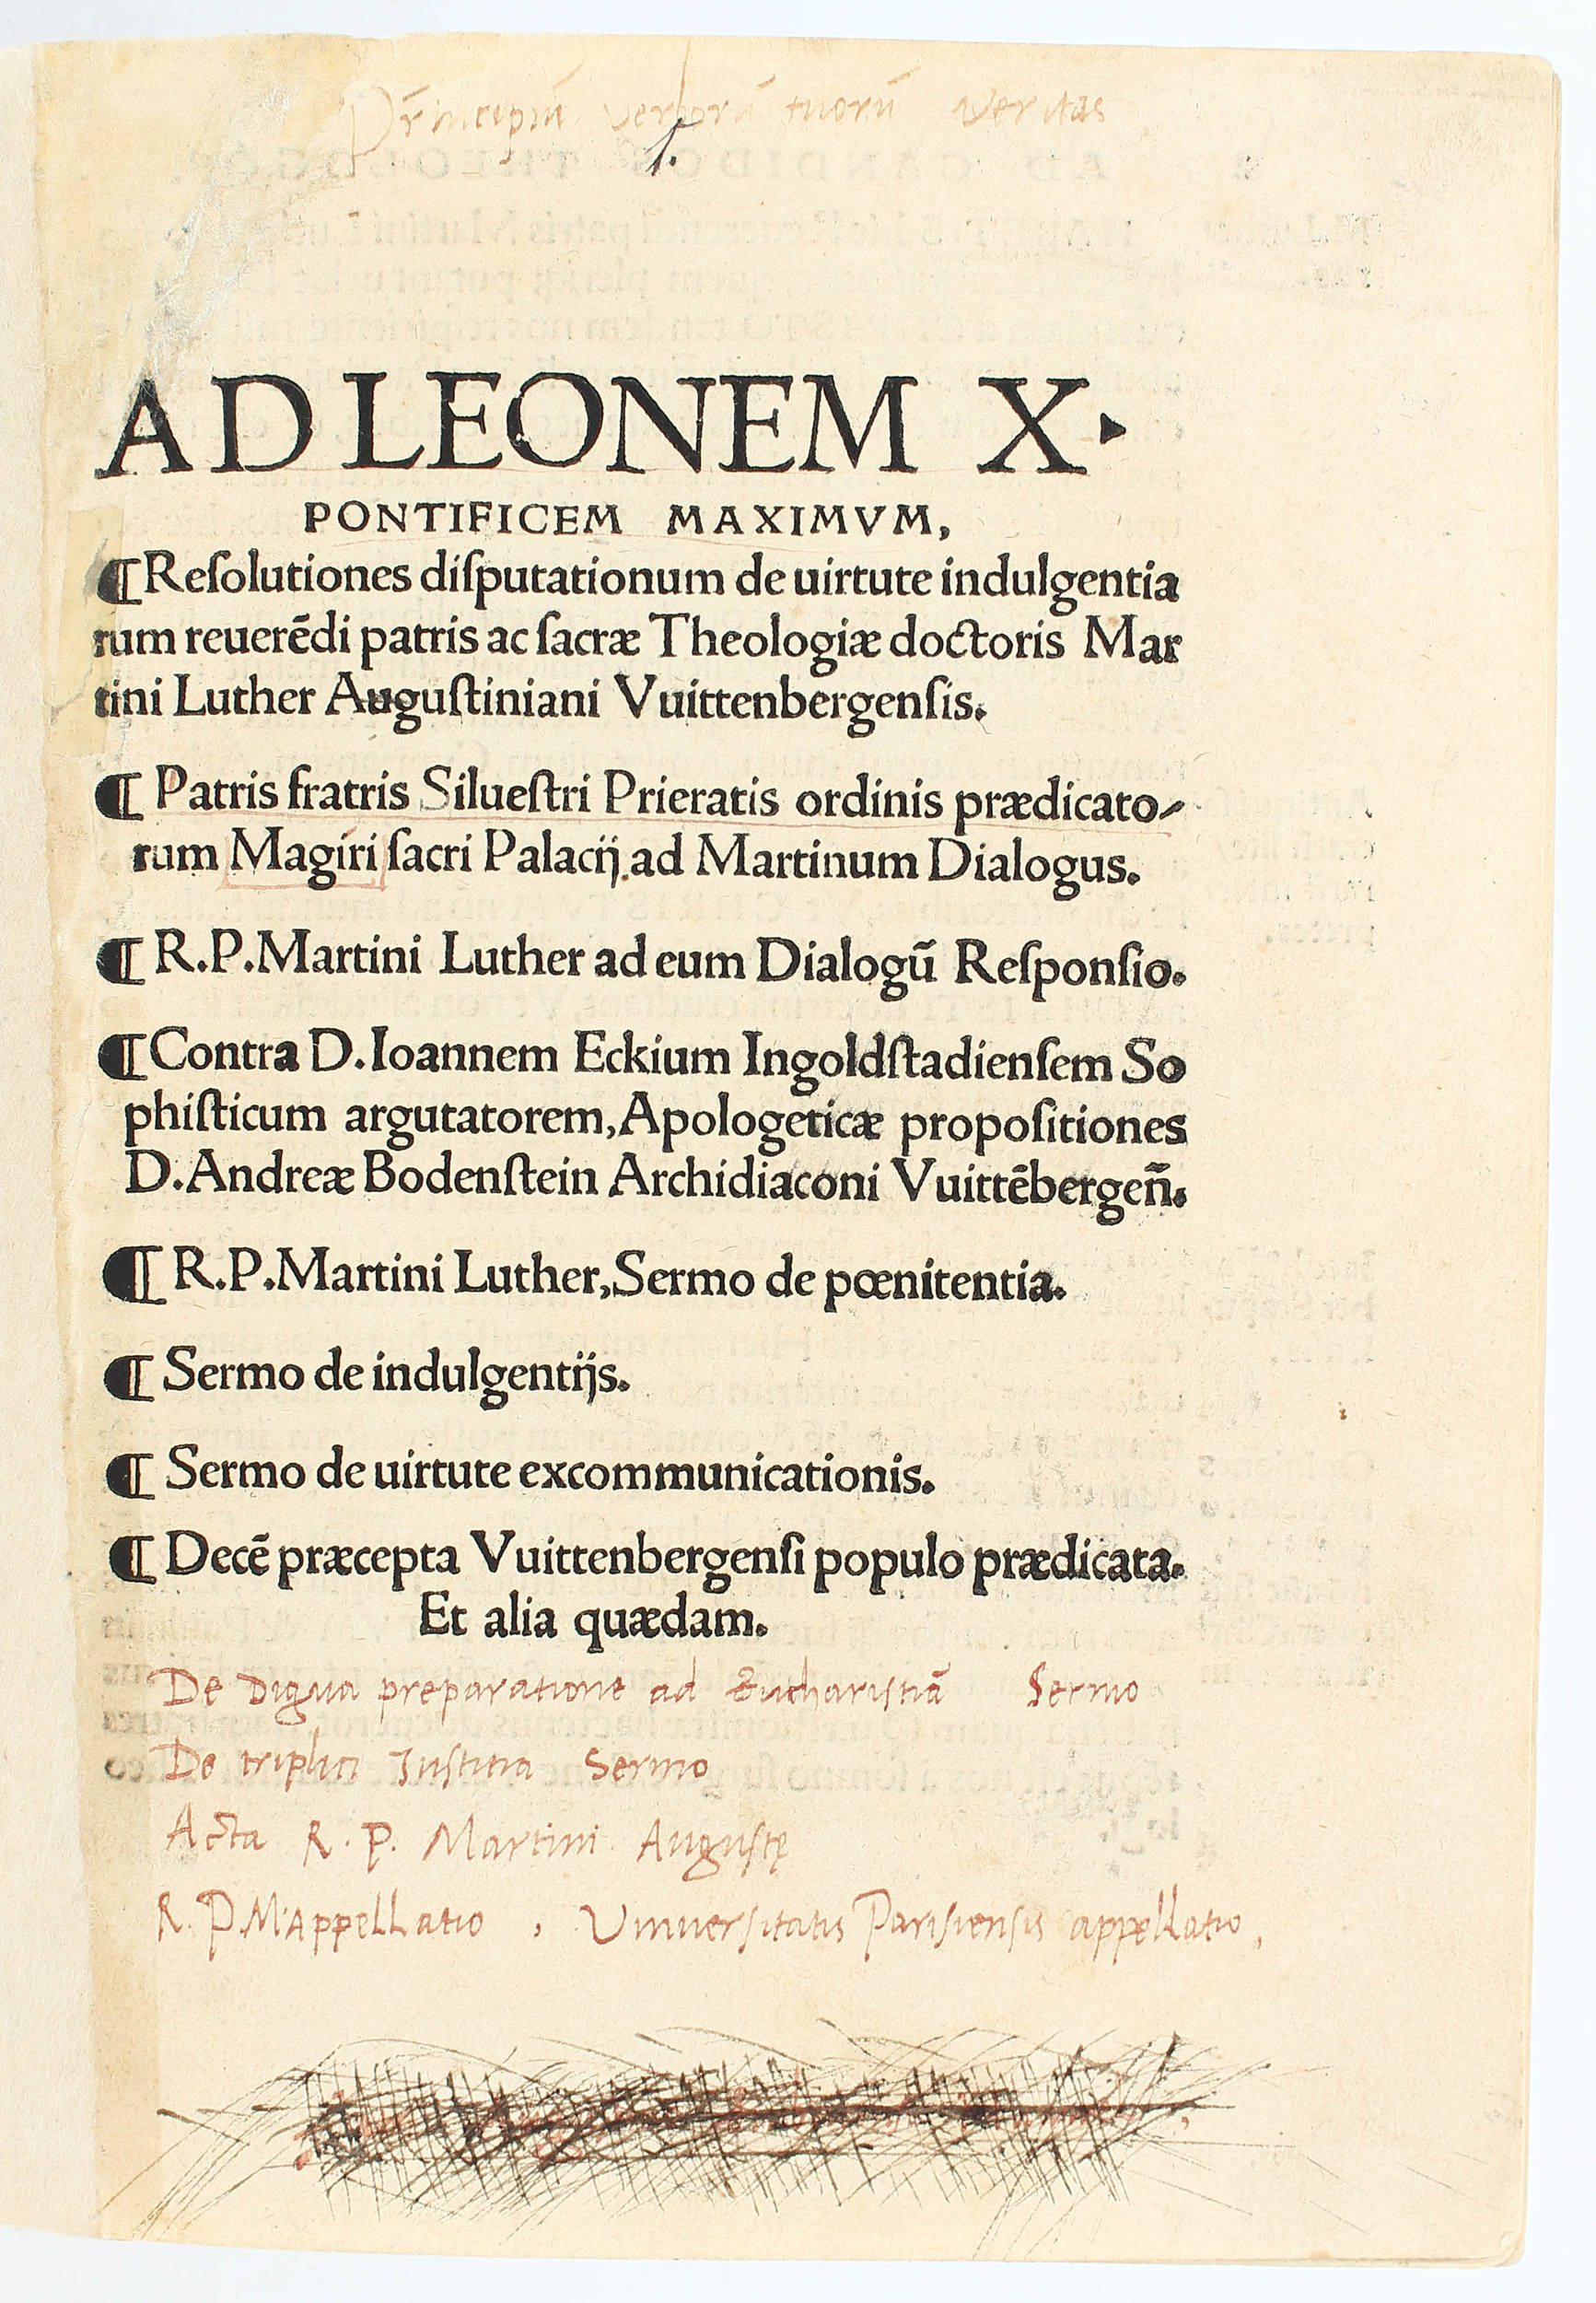 Principiū verborū tuorū veritas
1.
AD LEONEM X.
PONTIFICEM MAXIMVM,
¶Reſolutiones diſputationum de uirtute indulgentia
rum reuerēdi patris ac ſacræ Theologiæ doctoris Mar
tini Luther Auguſtiniani Vuittenbergenſis.
¶ Patris fratris Silueſtri Prieratis ordinis prædicato-
rum Magiri ſacri Palacij ad Martinum Dialogus.
¶ R.P.Martini Luther ad eum Dialogū Reſponſio.
¶Contra D.Ioannem Eckium Ingoldſtadienſem So
phiſticum argutatorem,Apologeticæ propoſitiones
D.Andreæ Bodenſtein Archidiaconi Vuittēbergeñ.
¶ R.P.Martini Luther,Sermo de pœnitentia.
¶ Sermo de indulgentijs.
¶ Sermo de uirtute excommunicationis.
¶ Decē præcepta Vuittenbergenſi populo prædicata.
Et alia quædam.
De digna preparatione ad Eucharistiā Sermo
De triplici Justitia Sermo
Acta R. P. Martini Augustę
R. P.M. Appellatio , Vniuersitatis Parisiensis appellatio,